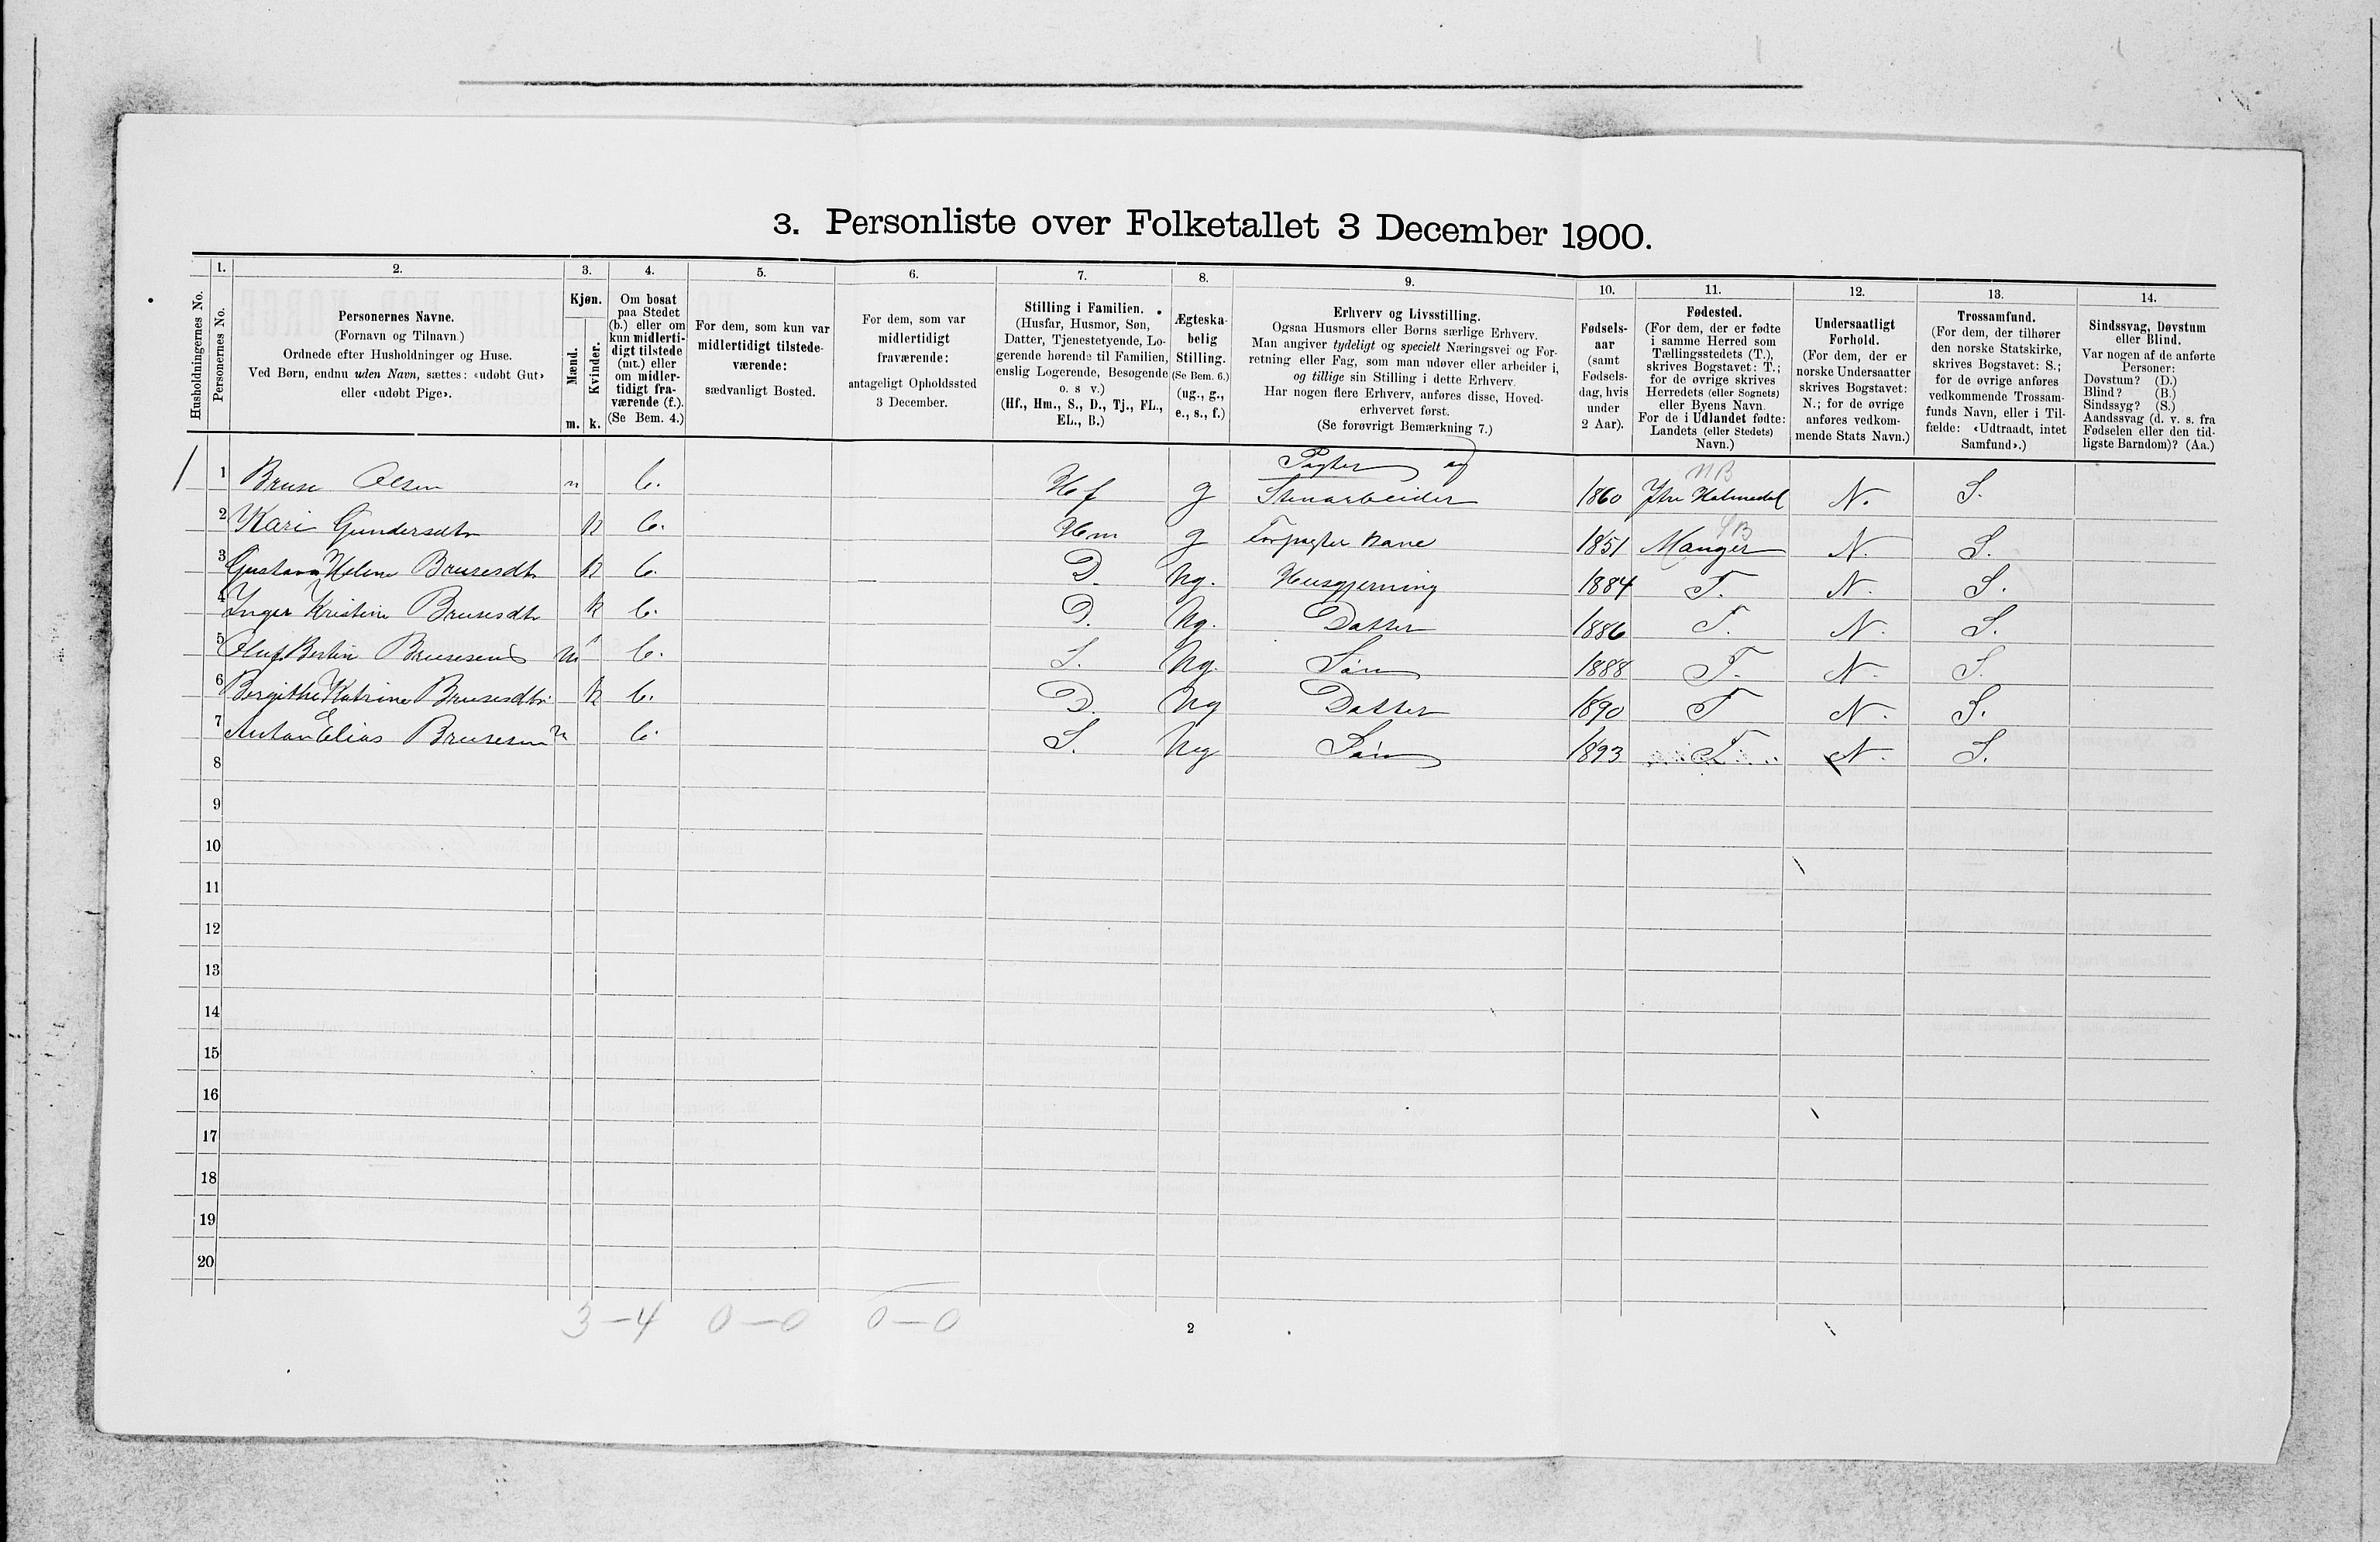 3. Personliste over Folketallet 3 December 1900.
Husholdningernes No.
1.
Personernes No.
2.
Personernes Navne.
(Fornavn og Tilnavn)
Ordnede efter Husholdninger og Huse.
Ved Børn, endnu uden Navn, sættes: «udøbt Gut»
eller «udøbt Pige».
3.
Kjøn.
Mænd.
Kvinder.
m. k.
4.
Om bosat
paa Stedet
(b.) eller om
kun midlerti-
digt tilstede
(mt.) eller
om midler-
tidigt fra-
værende (f.).
(Se Bem. 4.)
5.
For dem, som kun var
midlertidigt tilstede-
værende:
sædvanligt Bosted.
6.
For dem, som var
midlertidigt
fraværende:
antageligt Opholdssted
3 December.
7.
Stilling i Familien.
(Husfar, Husmor, Søn,
Datter, Tjenestetyende, Lo-
gerende hørende til Familien,
enslig Logerende, Besøgende
o. s v.)
(Hf., Hm., S., D., Tj., FL.,
EL., B.)
8.
Ægteska-
belig
Stilling.
(Se Bem. 6.)
(ug., g.,
e., s., f.)
9.
Erhverv og Livsstilling.
Ogsaa Husmors eller Børns særlige Erhverv.
Man angiver tydeligt og specielt Næringsvei og For-
retning eller Fag, som man udøver eller arbeider i,
og tillige sin Stilling i dette Erhverv.
Har nogen flere Erhverv, anføres disse, Hoved-
erhvervet først.
(Se forøvrigt Bemærkning 7.)
10.
Fødsels-
aar
(samt
Fødsels-
dag, hvis
under
2 Aar).
11.
Fødested.
(For dem, der er fødte
i samme Herred som
Tællingsstedets (T.),
skrives Bogstavet: T.;
for de øvrige skrives
Herredets (eller Sognets)
eller Byens Navn.
For de i Udlandet fødte:
Landets (eller Stedets)
Navn.)
12.
Undersaatligt
Forhold.
(For dem, der er
norske Undersaatter
skrives Bogstavet:
N.; for de øvrige
anføres vedkom-
mende Stats Navn.)
13.
Trossamfund.
(For dem, der tilhører
den norske Statskirke,
skrives Bogstavet: S.;
for de øvrige anføres
vedkommende Trossam-
funds Navn, eller i Til-
fælde: «Udtraadt, intet
Samfund».)
14.
Sindssvag, Døvstum
eller Blind.
Var nogen af de anførte
Personer:
Døvstum? (D.)
Blind? (B.)
Sindssyg? (S.)
Aandssvag (d. v. s. fra
Fødselen eller den tid-
ligste Barndom)? (Aa.)
Pagter og NB
1 Bruse Olsen m b. Hf g Stenarbeider 1860 Ytre Holmedal N. S.
SB
2 Kari Gundersdtr k b. Hm g Forpagter kane 1851 Manger N. S.
3 Gustava Helene Brusesdtr k b. D. Ug. Husgjerning 1884 T. N. S.
4 Inger Kristine Brusesdtr k b. D. Ug. Datter 1886 T. N. S.
5 Oluf Bertin Brusesen m b. S. Ug. Søn 1888 T. N. S.
6 Bergithe Katrine Brusesdtr. k b. D. Ug Datter 1890 T N. S.
7 Anton Elias Brusesen m b. S. Ug Søn 1893 T. N. S.
8
9
10
11
12
13
14
15
16
17
18
19
20
3–4 0–0 0–0
2